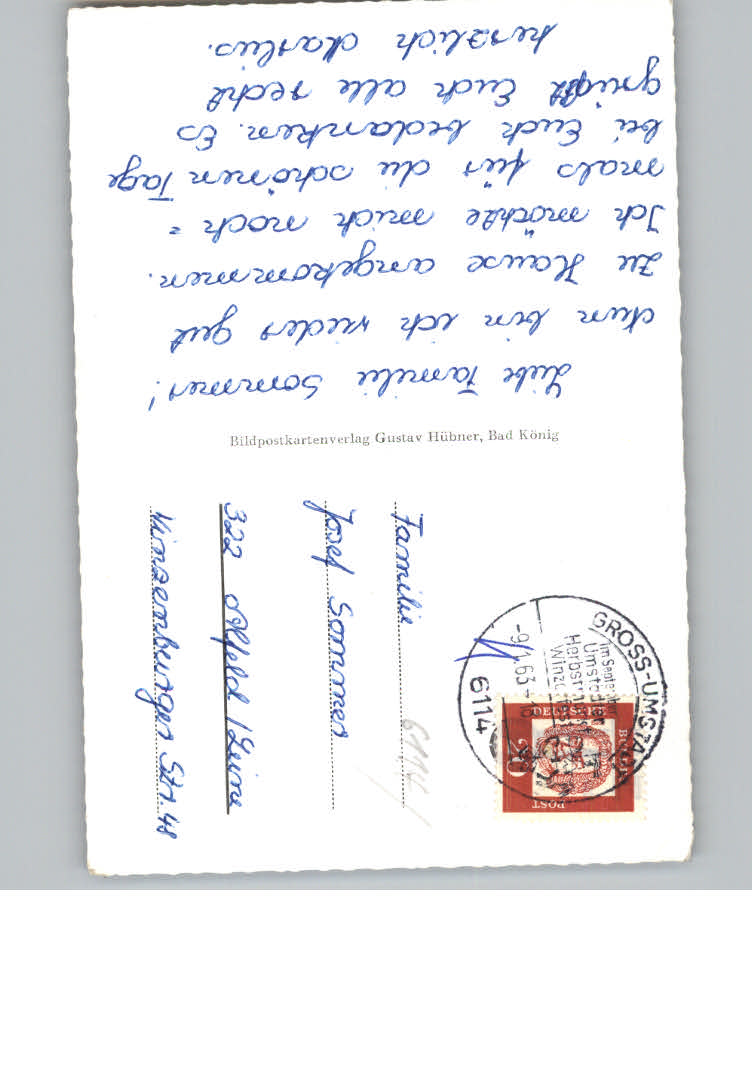 Liebe Familie Sommer!
Nun bin ich wieder gut
zu Hause angekommen.
Ich möchte mich noch =
mals für die schönen Tage
bei Euch bedanken. Es
grüßt Euch alle recht
herzlich
Bildpostkartenverlag Gustav Hübner, Bad König
Familie
Josef Sommer
322 Alfeld / Leine
Winzenburger Str. 48
6114
GROSS-UMSTADT
-9.1.63
Im September
Umstädter
Herbst
Winz
6114
DEUTSCHE
BUNDES
POST
20